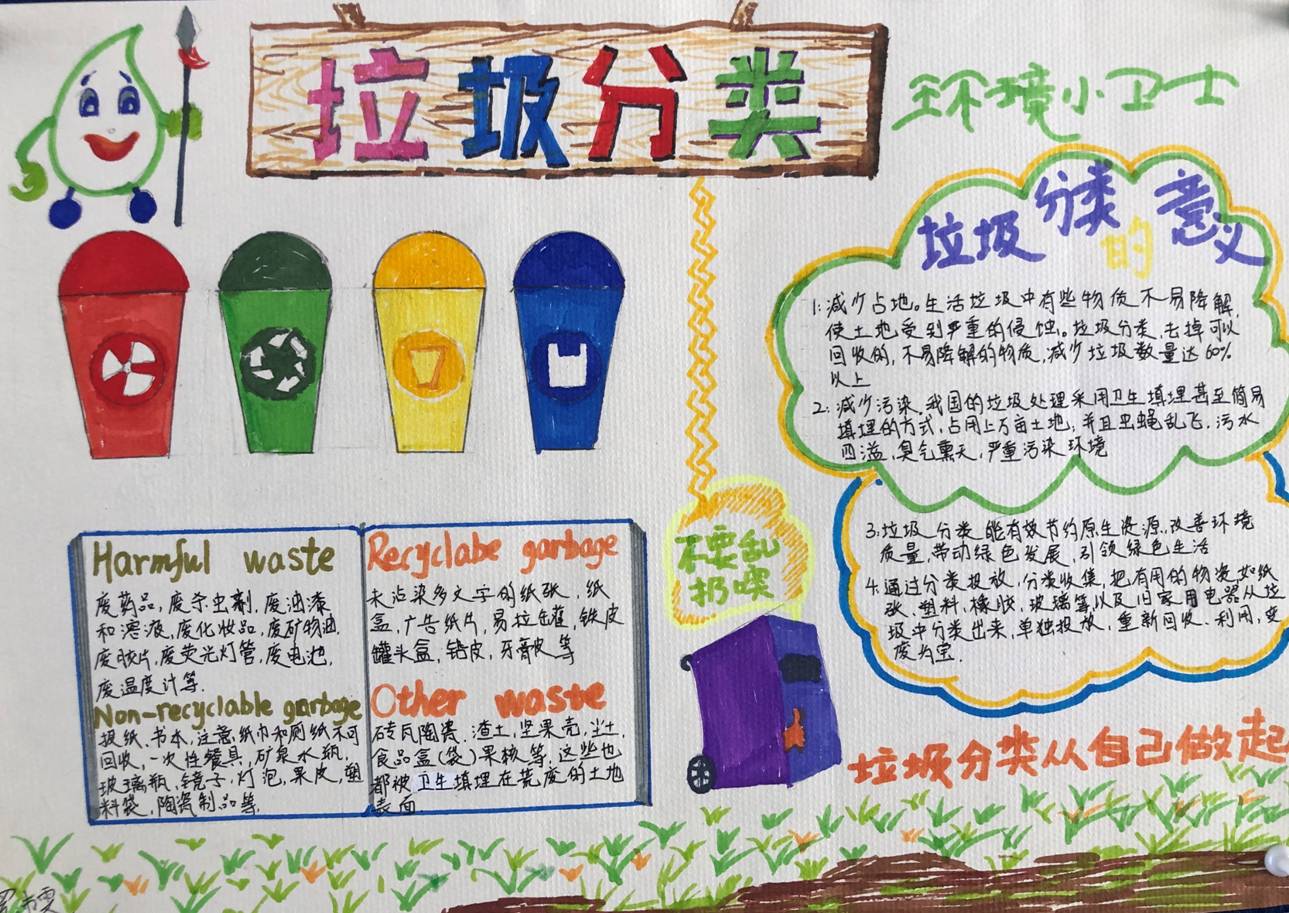 垃圾分类
环境小卫士
垃圾分类的意义
1:减少占地。生活垃圾中有些物质不易降解,
使土地受到严重的侵蚀。垃圾分类,去掉可以
回收的,不易降解的物质,减少垃圾数量达60%
以上
2:减少污染.我国的垃圾处理采用卫生填埋甚至简易
填埋的方式,占用上万亩土地,并且虫蝇乱飞.污水
四溢,臭气熏天,严重污染环境
3.垃圾分类能有效节约原生资源.改善环境
质量,带动绿色发展,引领绿色生活
4.通过分类投放,分类收集,把有用的物资,如纸
张.塑料,橡胶,玻璃等以及旧家用电器从垃
圾中分类出来,单独投放,重新回收.利用,变
废为宝.
不要乱
扔噢
Harmful waste
废药品,废杀虫剂,废油漆
和溶液,废化妆品,废矿物油,
废胶片,废荧光灯管,废电池,
废温度计等.
Non-recyclable garbage
报纸.书本,注意,纸巾和厕纸不可
回收,一次性餐具,矿泉水瓶,
玻璃瓶,镜子,灯泡,果皮,塑
料袋,陶瓷制品等.
Recyclabe garbage
未沾染多文字的纸张,纸
盒,广告纸片,易拉罐,铁皮
罐头盒,铅皮,牙膏皮等
Other waste
砖瓦陶瓷,渣土,坚果壳,尘土,
食品盒(袋)果核等.这些也
都被卫生填埋在荒废的土地
表面
垃圾分类从自己做起